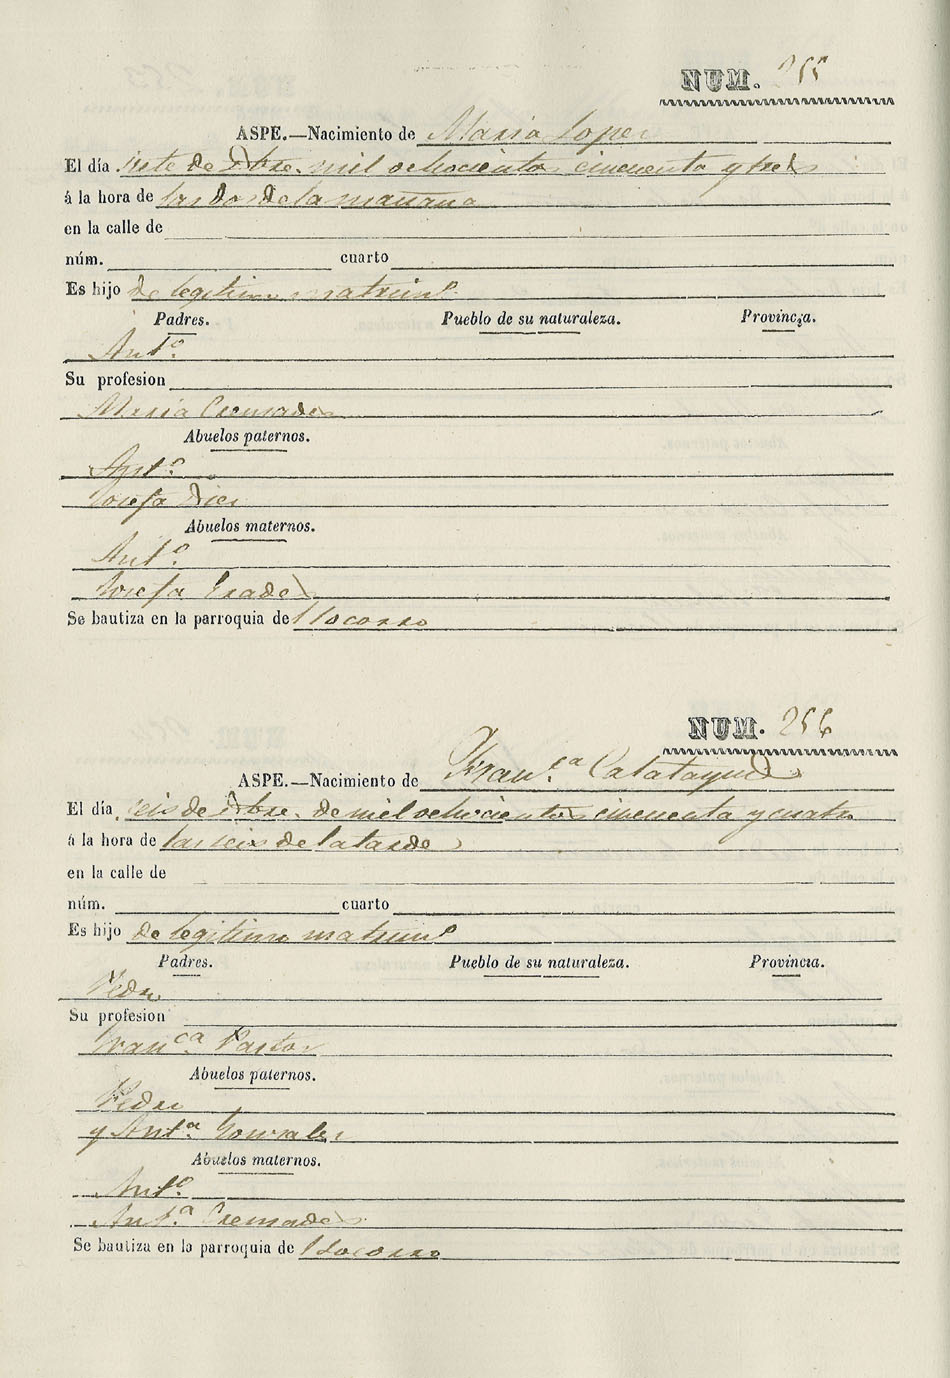 NUM. 255
ASPE.—Nacimiento de Maria Lopez
El día siete de Dbre. mil ochocientos cincuenta y tres
á la hora de las dos de la mañana
en la calle de
núm. cuarto
Es hijo de legitimo matriml.
Padres. Pueblo de su naturaleza. Provincia.
Anto.
Su profesion
Maria Cremades
Abuelos paternos.
Anto.
Josefa Diez
Abuelos maternos.
Anto.
Josefa Prades
Se bautiza en la parroquia de Socorro
NUM. 256
ASPE.—Nacimiento de Franca. Calatayud
El día seis de Dbre. de mil ochocientos cincuenta y cuatro
á la hora de las seis de la tarde
en la calle de
núm. cuarto
Es hijo de legitimo matriml
Padres. Pueblo de su naturaleza. Provincia.
Pedro
Su profesion
Franca Pastor
Abuelos paternos.
Pedro
y Anta. Gonzalez
Abuelos maternos.
Anto.
Anta. Cremades
Se bautiza en la parroquia de Socorro